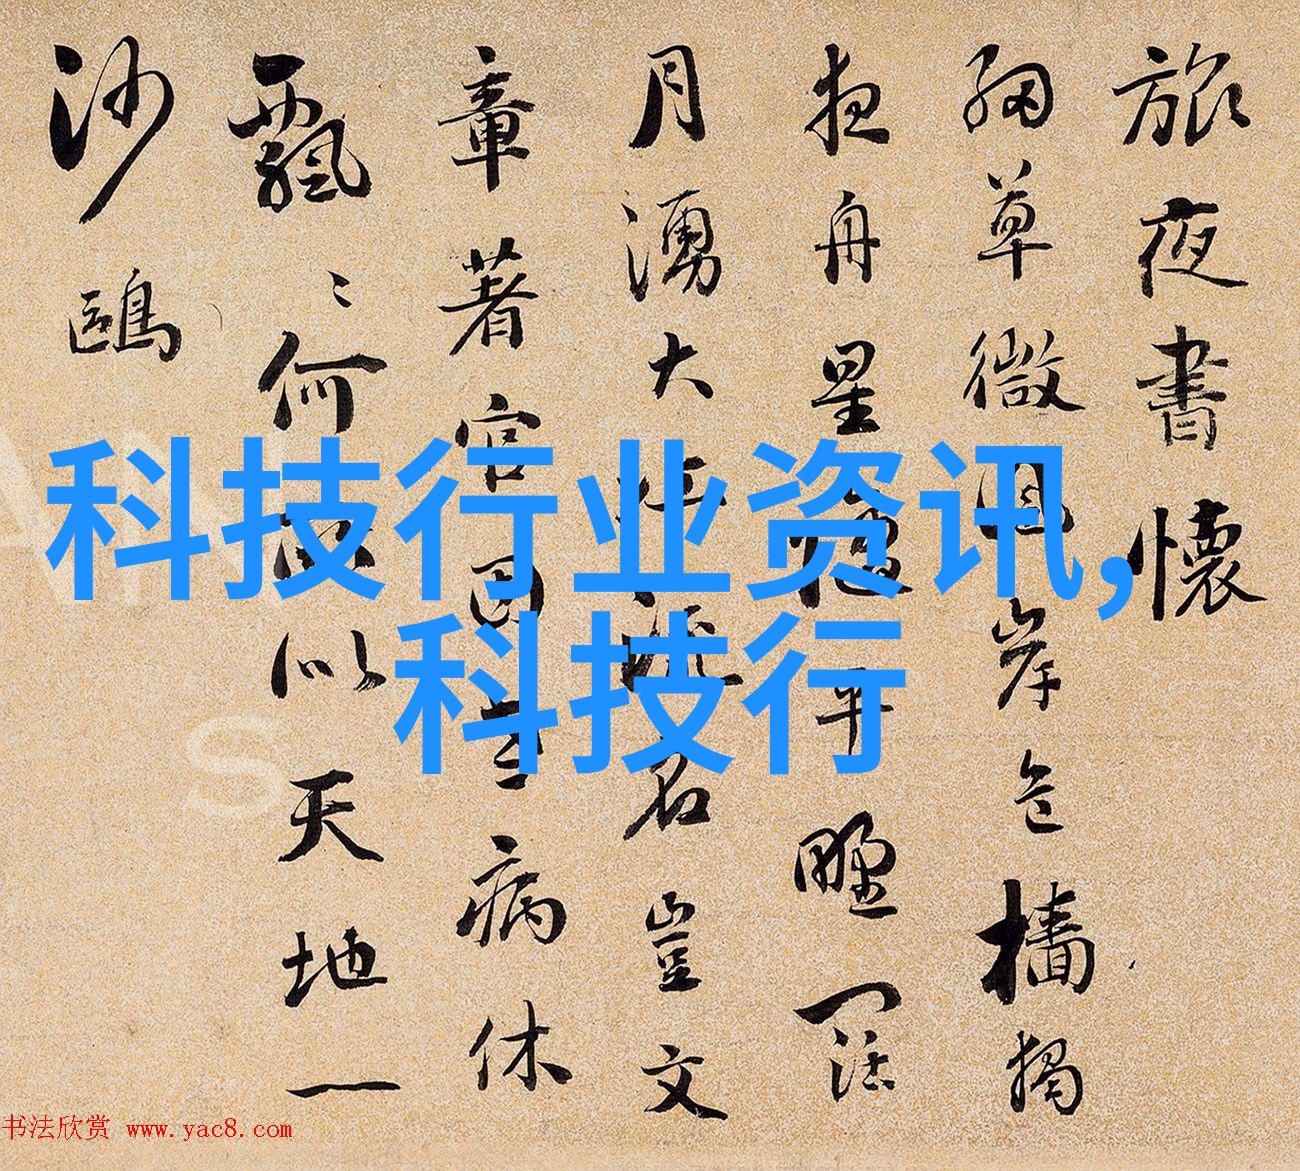 旅夜書懷
細草微風岸危檣獨
夜舟星平野闊
月湧大江流名豈文
章著官因老病休
飄〻何所似天地一
沙鷗
科技行业资讯,
科技行
S
书法欣赏 www.yac8.com